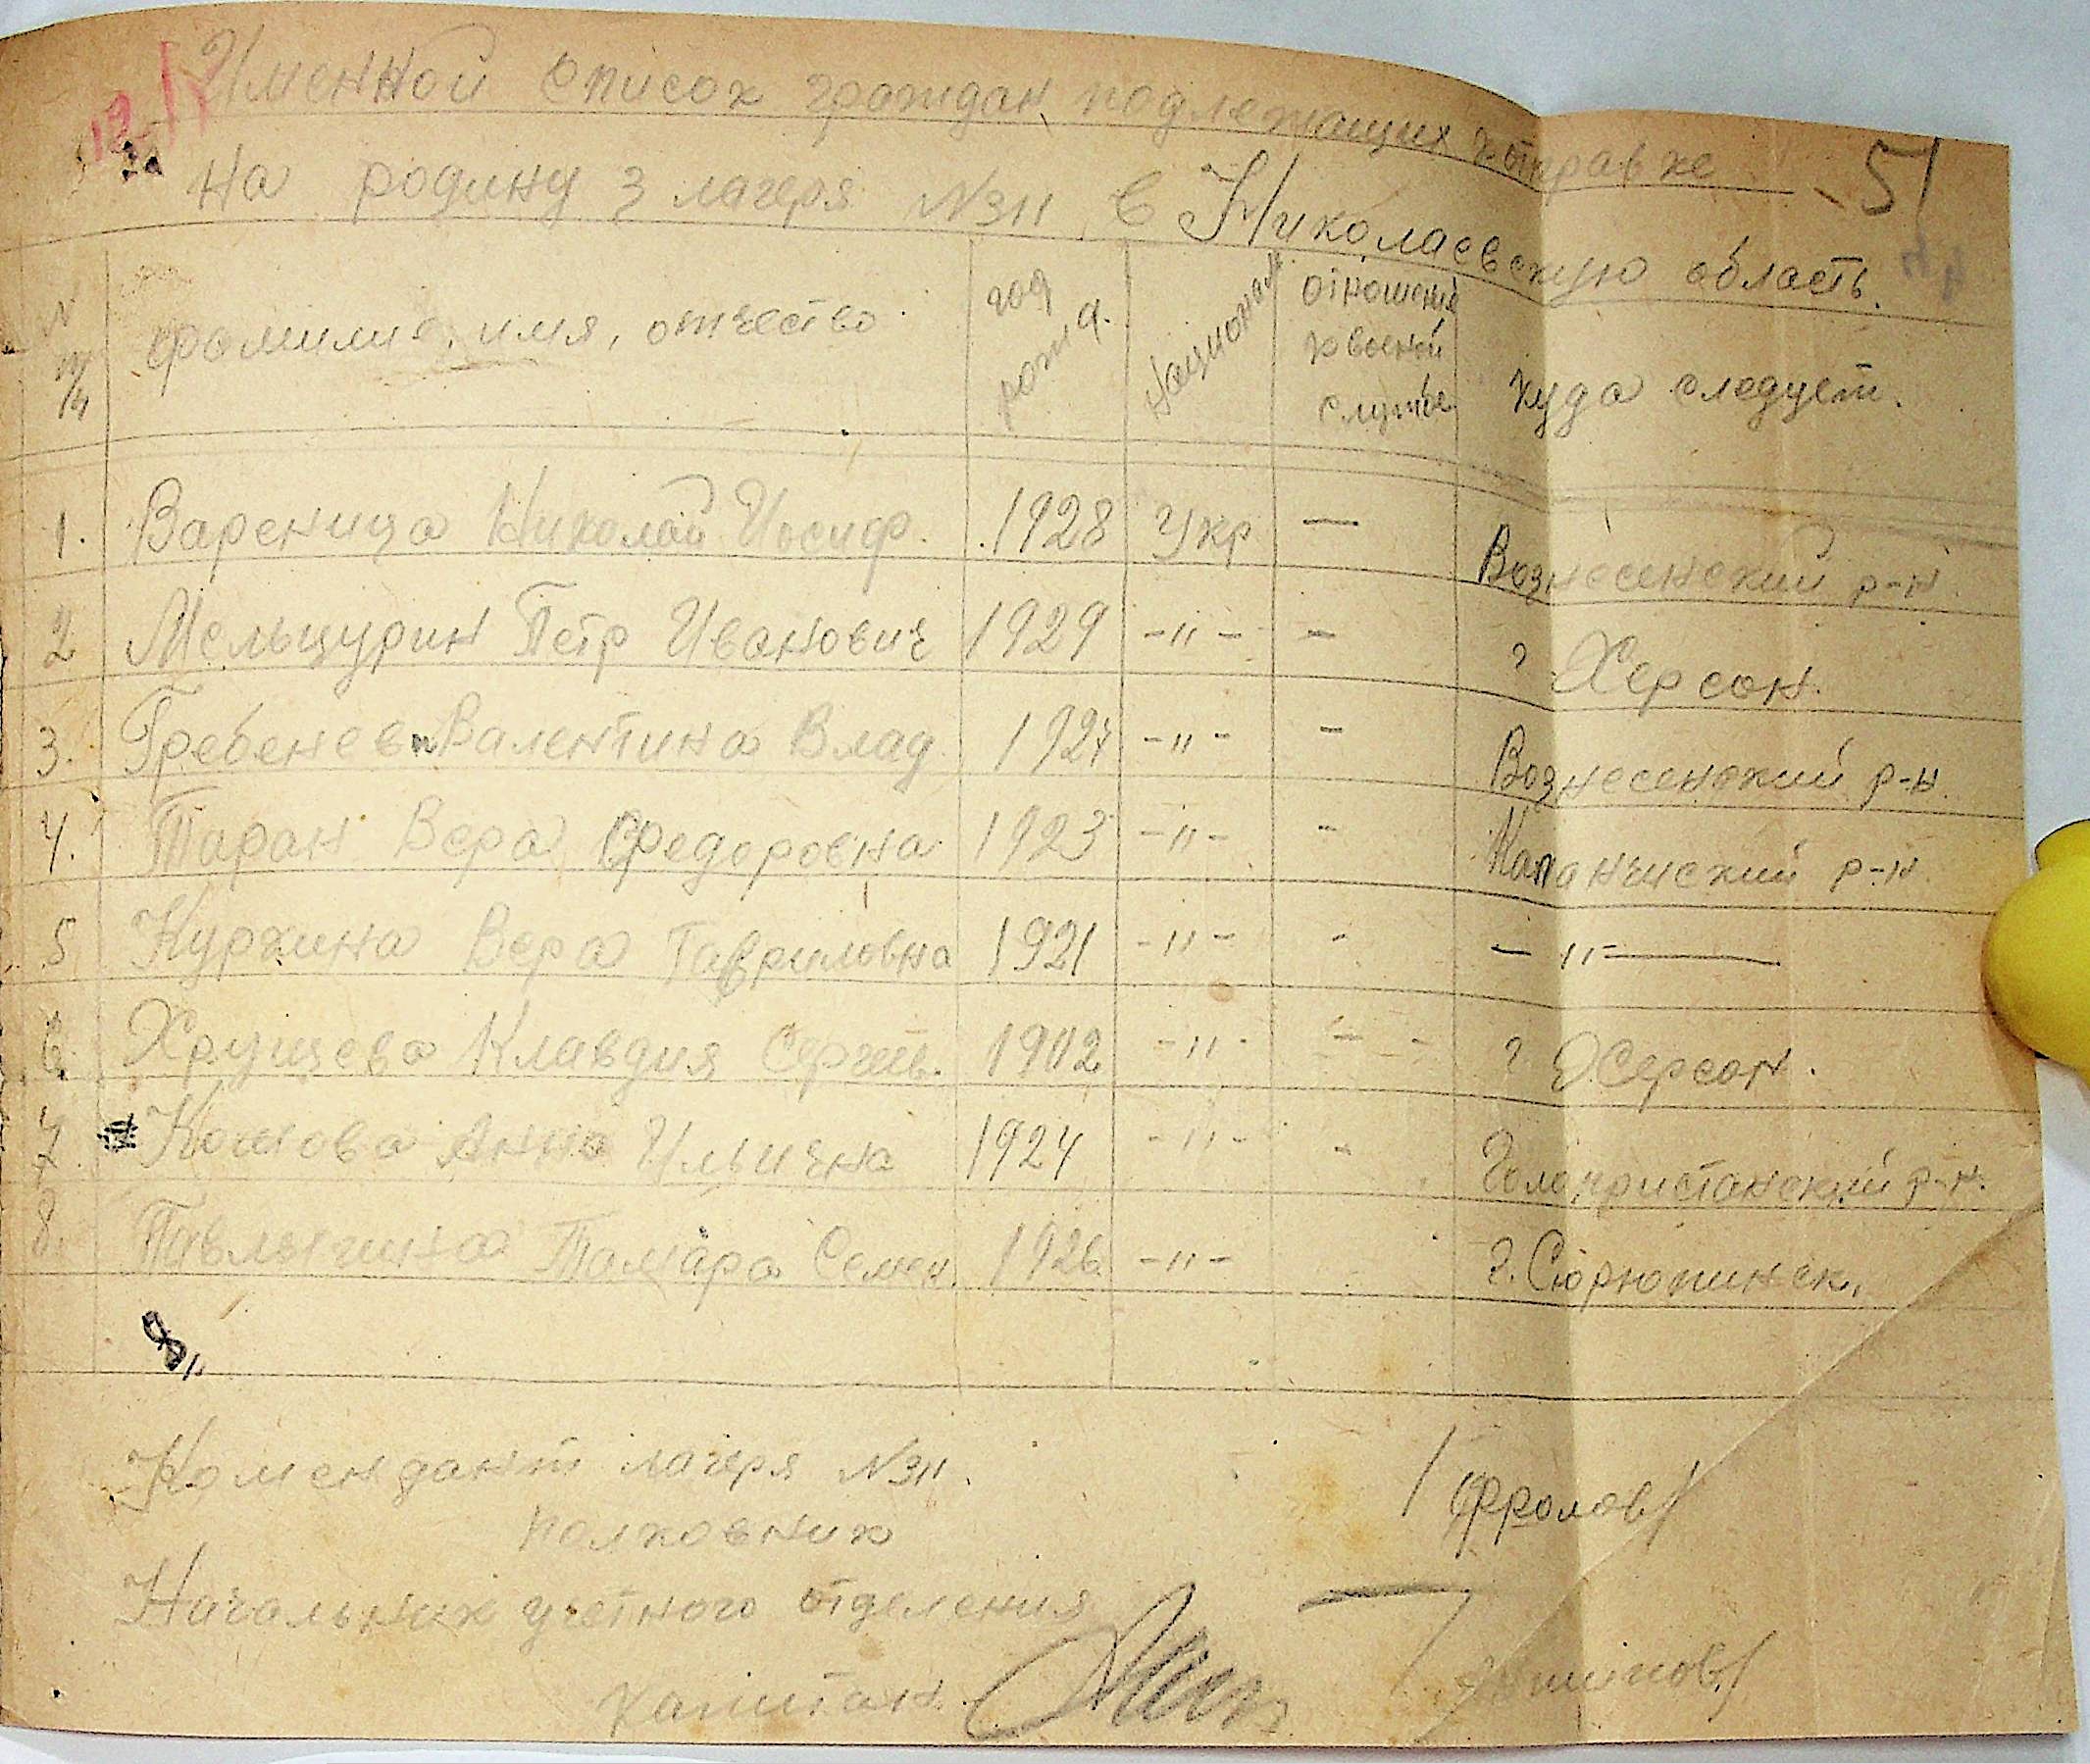 Именной список граждан подлежащих к отправке
на родину з лагеря N311 в Николаевскую область.
51
N п/п фамилия, имя, отчество год рожд. национал отношение к военой службе куда следует.
1. Вареница Николай Иосиф. 1928 Укр — Вознесенский р-н
2 Мельцурин Петр Иванович 1929 -"- - г Херсон.
3. Гребенев Валентина Влад 1927 -"- - Вознесенский р-н.
4. Таран Вера Федоровна 1923 -"- - Капанчиский р-н.
5 Куркина Вера Гавриловна 1921 -"- - — " —
6. Хрущева Клавдия Сергеев. 1902 -"- - г Херсон.
7. Комова Анна Ильична 1924 -"- - Голопристанский р-н.
8. Тамара Семен. 1926 -"- г. Сюрюпинск.
8
Комендант лагеря N311.
полковник /Фролов/
Начальник учетного отделения
капитан